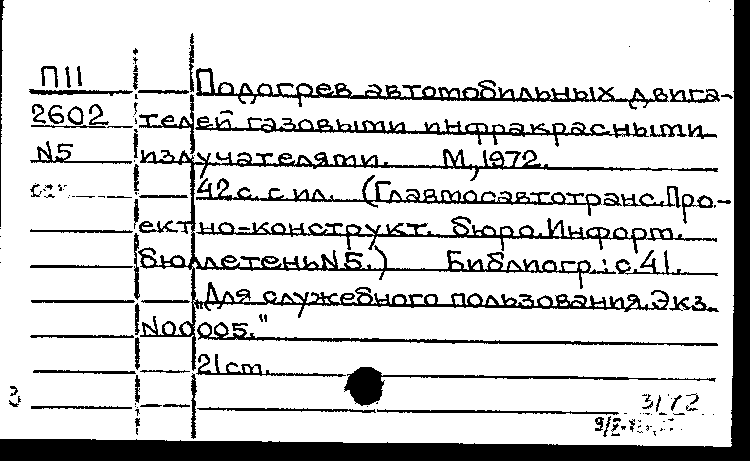 П11 Подогрев автомобильных двига-
2602 телей газовыми инфракрасными
N5 излучателями. М., 1972.
42 с. с ил. (Главмосавтотранс. Про-
ектно-конструкт. бюро. Информ.
бюллетень N5.) Библиогр.: с. 41.
"Для служебного пользования. Экз.
N00005."
21 cm.
3172